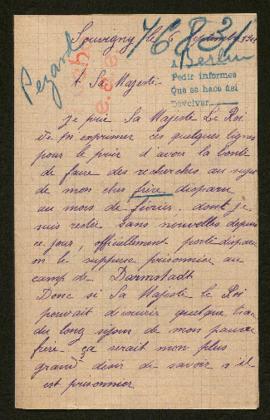 Pezard
Souvigny le 6 Septembre
76821
A Berlin
Pedir informes
Que se hace así
Devolver
A Sa Majesté
Je prie Sa Majesté Le Roi
de m exprimer ces quelques lignes
pour le prier d'avoir la bonté
de faire des recherches au sujet
de mon cher frère disparu
au mois de février, dont je
suis restée sans nouvelles depuis
ce jour, officellement porté disparu
on le suppose prisonnier au
camp de Darmstadt
Donc si Sa Majesté Le Roi
pouvait découvrir quelque
du long séjour de mon pauvre
frère ça serait mon plus
grand désir de savoir s'il
est prisonnier